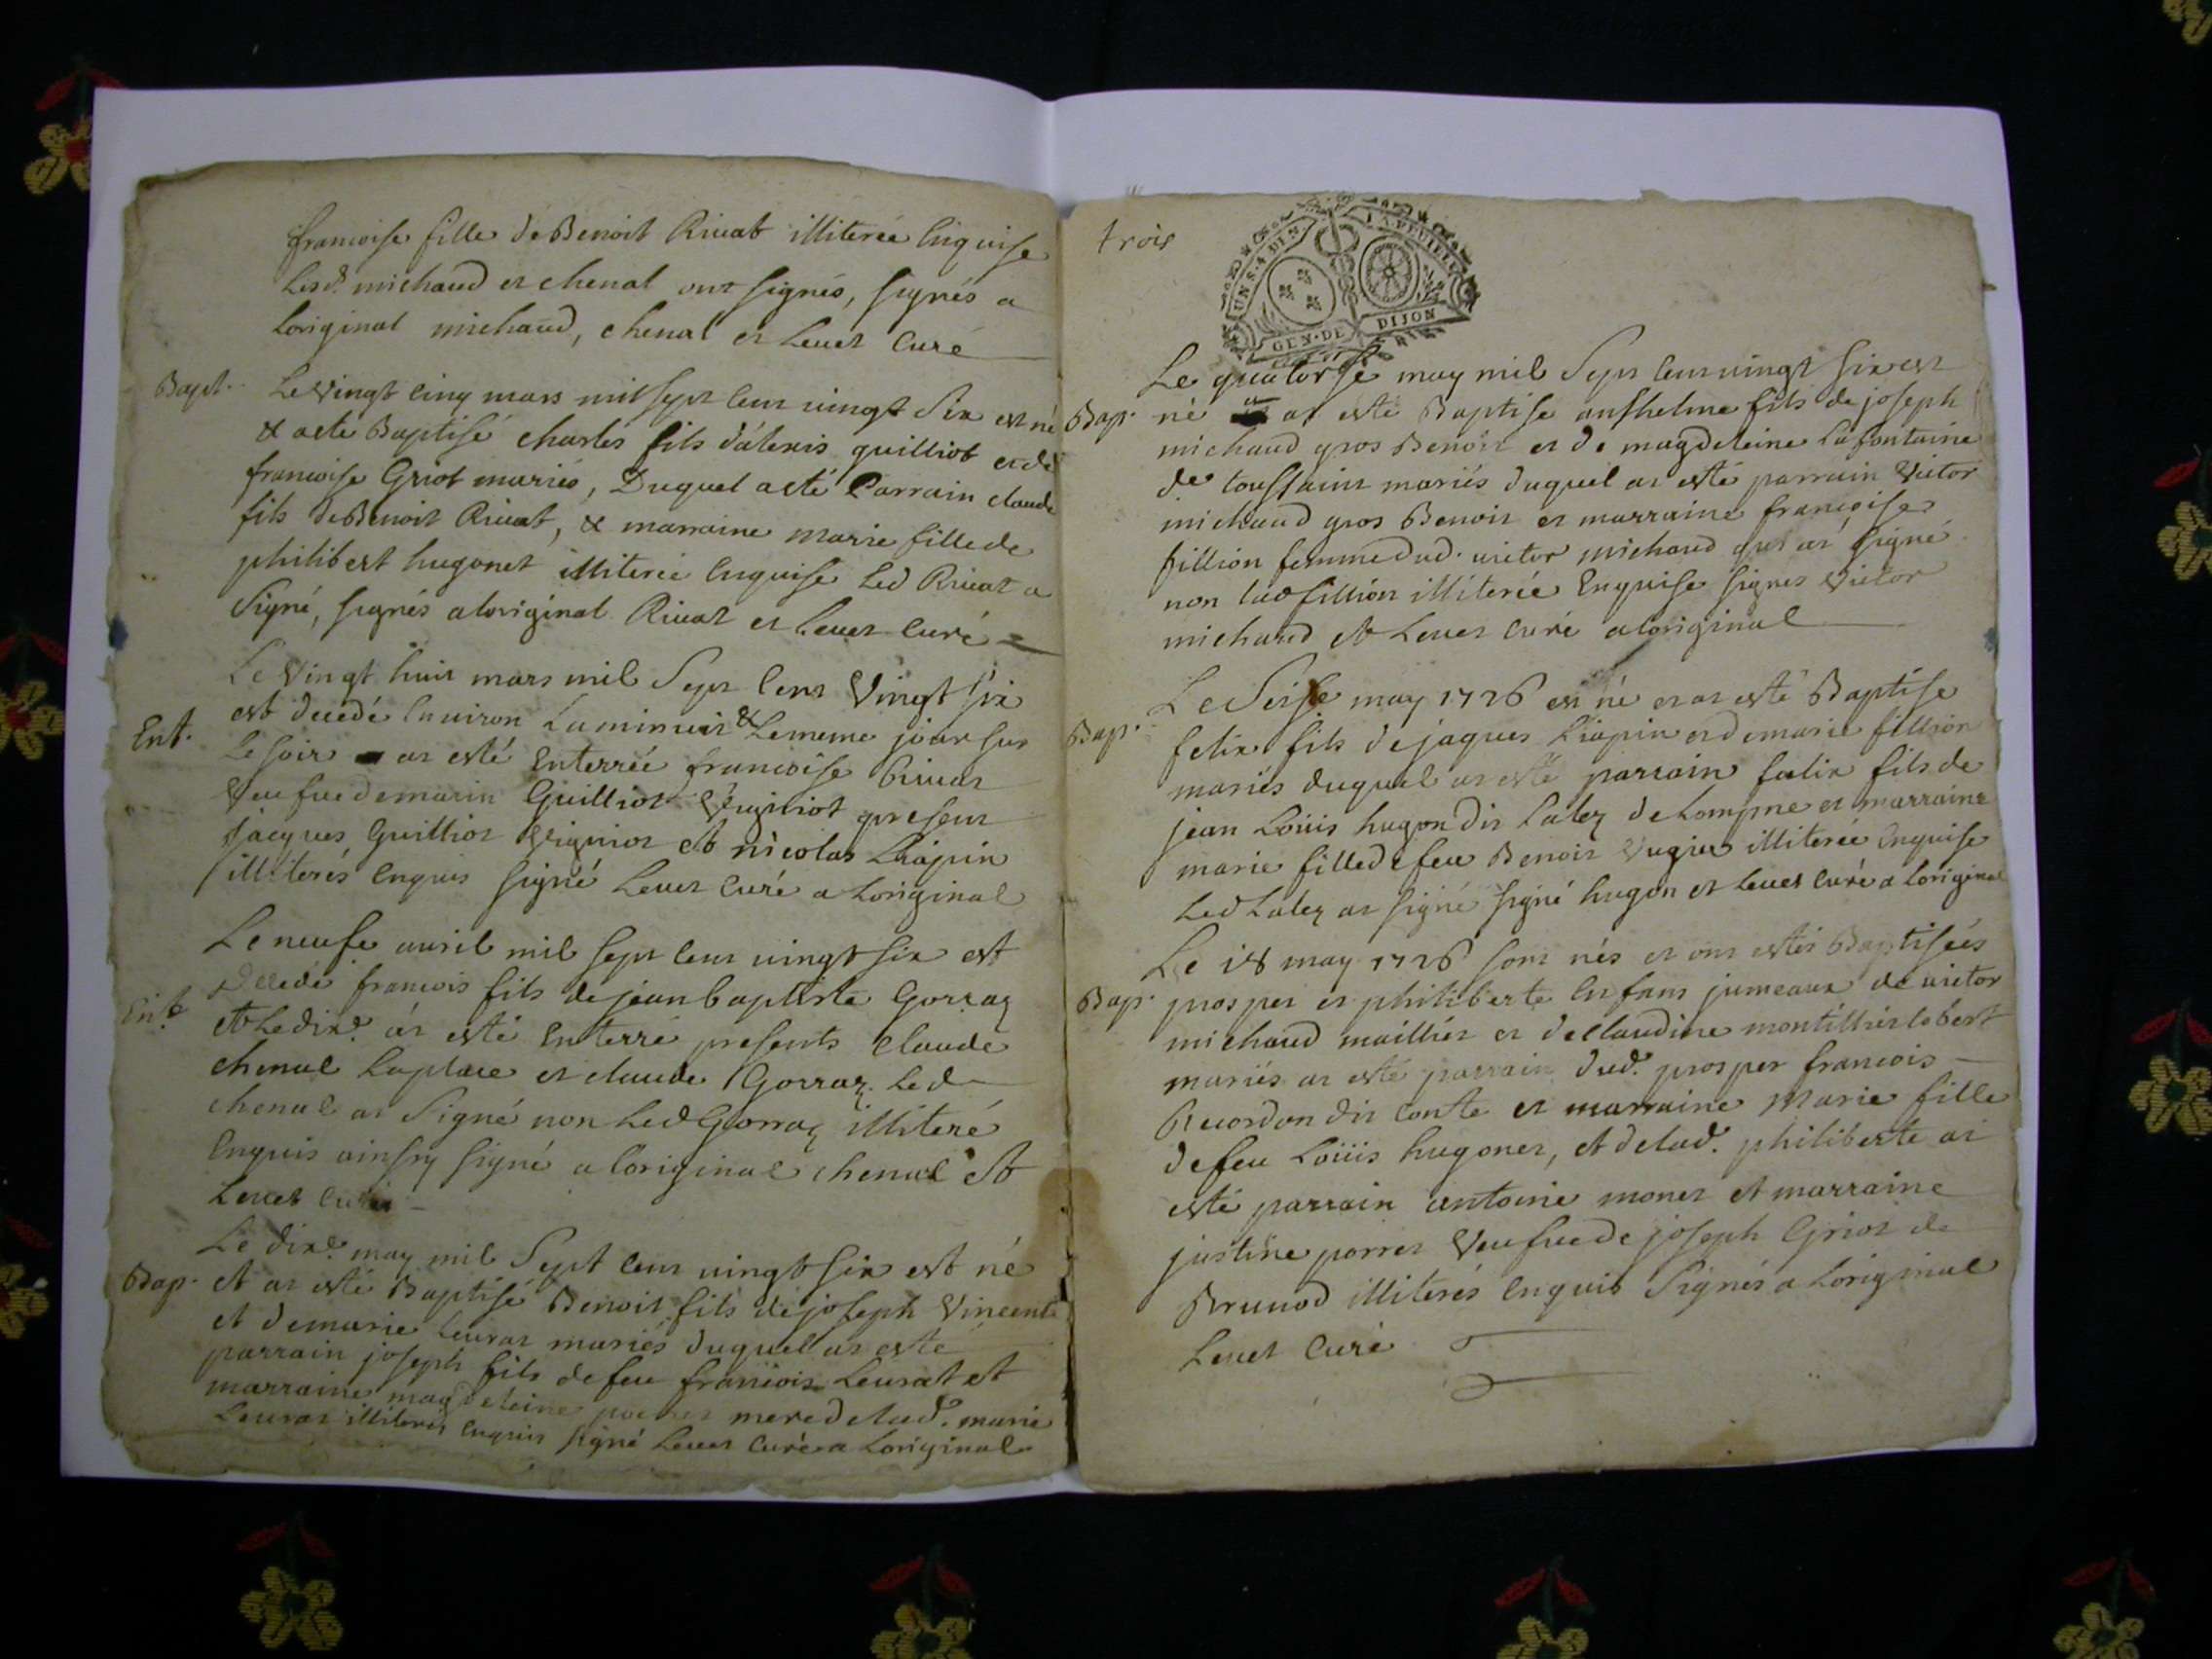 francoise fille de Benoit Riuat illiterée Enquise
Lesd. michaud et chenal ont signés, signés a
Loriginal michaud, chenal et Leuet Curé
Bapt. Le vingt cinq mars mil sept cent vingt Six est né
& a eté Baptisé charles fils d'alexis guilliot et de
francoise Griot mariés, Duquel a eté Parrain claude
fils de Benoit Riuat, & marraine marie fille de
philibert hugonet illiterée Enquise Led Riuat a
Signé, signés a loriginal Riuat et Leuet Curé
Le Vingt huit mars mil Sept Cent Vingt six
est decedé Enuiron La minuit & Le meme jour sur
Ent. Le soir at esté Enterrée francoise
Veufue de marin Guilliot present
jacques Guilliot et nicolas Liapin
illiterés Enquis signé Leuet Curé a Loriginal
Le neufe auril mil sept cent uingt six est
Decedé francois fils de jean baptiste Gorraz
Ent. et Le dixe. at esté Enterré presents claude
chenal Laplace et claude Gorraz Led
chenal at Signé non Led Gorraz illiteré
Enquis ainsy signé a loriginal chenal et
Leuet Curé
Le dixe. may mil Sept cent uingt six est né
Bap. et at esté Baptisé Benoit fils de joseph Vincent
et de marie Leurat mariés duquel at esté
parrain joseph fils de feu francois Leurat et
marraine magdeleine mere de lad. marie
Leurat illiterés Enquis signé Leuet Curé a Loriginal
trois
UN.S.4.DEN. LA FEUILLE
GEN. DE DIJON
Le quatorse may mil Sept cent uingt six est
Bap. né et at esté Baptise anshelme fils de joseph
michaud gros Benoit et de magdeleine Lafontaine
de toussaint mariés duquel at esté parrain Victor
michaud gros Benoit et marraine francoise
fillion femme dud. uictor michaud qui at signé
non lad fillion illiterée Enquise signes Victor
michaud et Leuet curé a loriginal
Le Seise may 1726 est né et at esté Baptise
Bap. felix fils de jaques Liapin et de marie fillion
mariés duquel at esté parrain felix fils de
jean Loüis hugon dit Lalez de Lompne et marraine
marie fille de feu Benoit Vugier illiterée Enquise
Led Lalez at signé signé hugon et Leuet curé a Loriginal
Le 18 may 1726 sont nés et ont estés Baptisées
Bap. prosper et philiberte Enfans jumeaux de uictor
michaud maillier et de claudine montillier lobert
mariés at esté parrain dud. prosper francois
Reuordon dit Conte et marraine Marie fille
de feu Loüis hugonet, et de lad. philiberte at
esté parrain antoine monet et marraine
justine porret Veufue de joseph Griot de
Brunod illiterés Enquis Signés a Loriginal
Leuet Curé